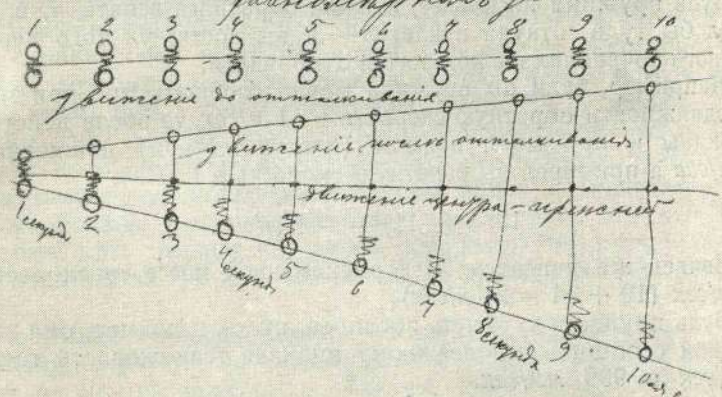 1 2 3 4 5 6 7 8 9 10
движеніе до отталкиванія
движеніе послѣ отталкиванія
движеніе центра-
1 секунда 2 3 4 секунда 5 6 7 8 секунда 9 10ая